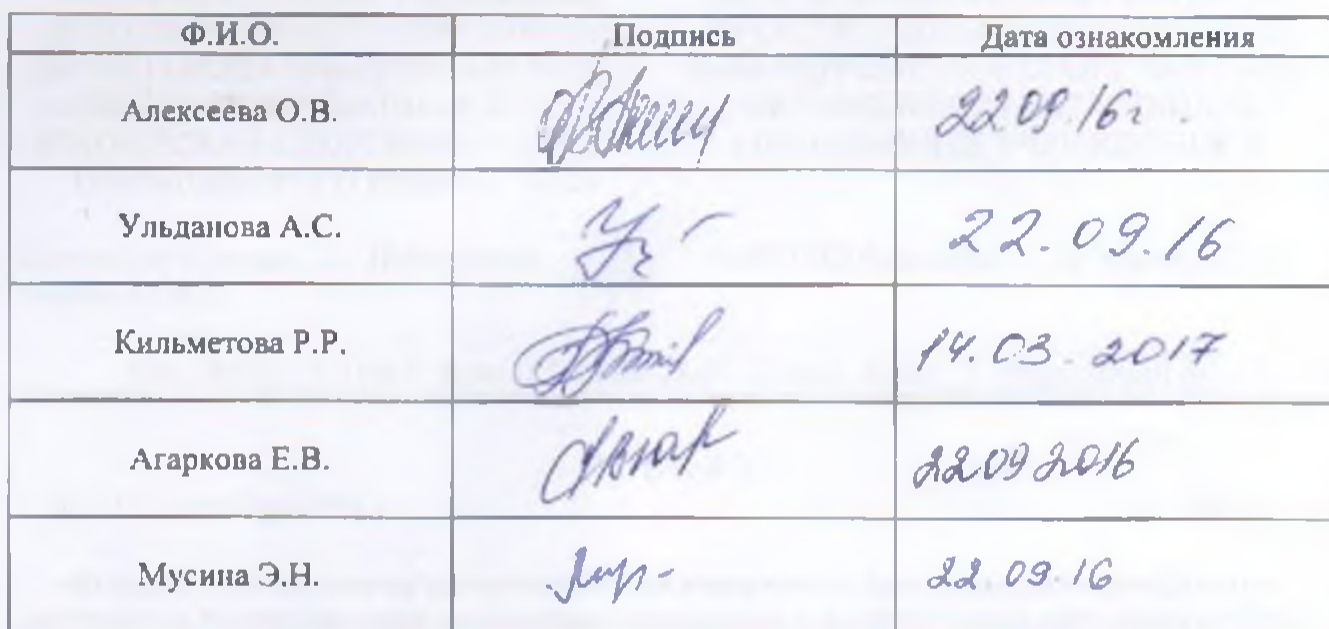 Ф.И.О. Подпись Дата ознакомления
Алексеева О.В. 22 09 16г.
Ульданова А.С. 22.09.16
Кильметова Р.Р. 14.03.2017
Агаркова Е.В. 22 09 2016
Мусина Э.Н. 22.09.16